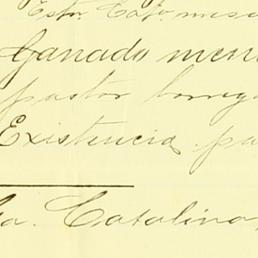 Esta Cata mesa
Ganado men
pastor borreg
Existencia pa
ta. Catalina,